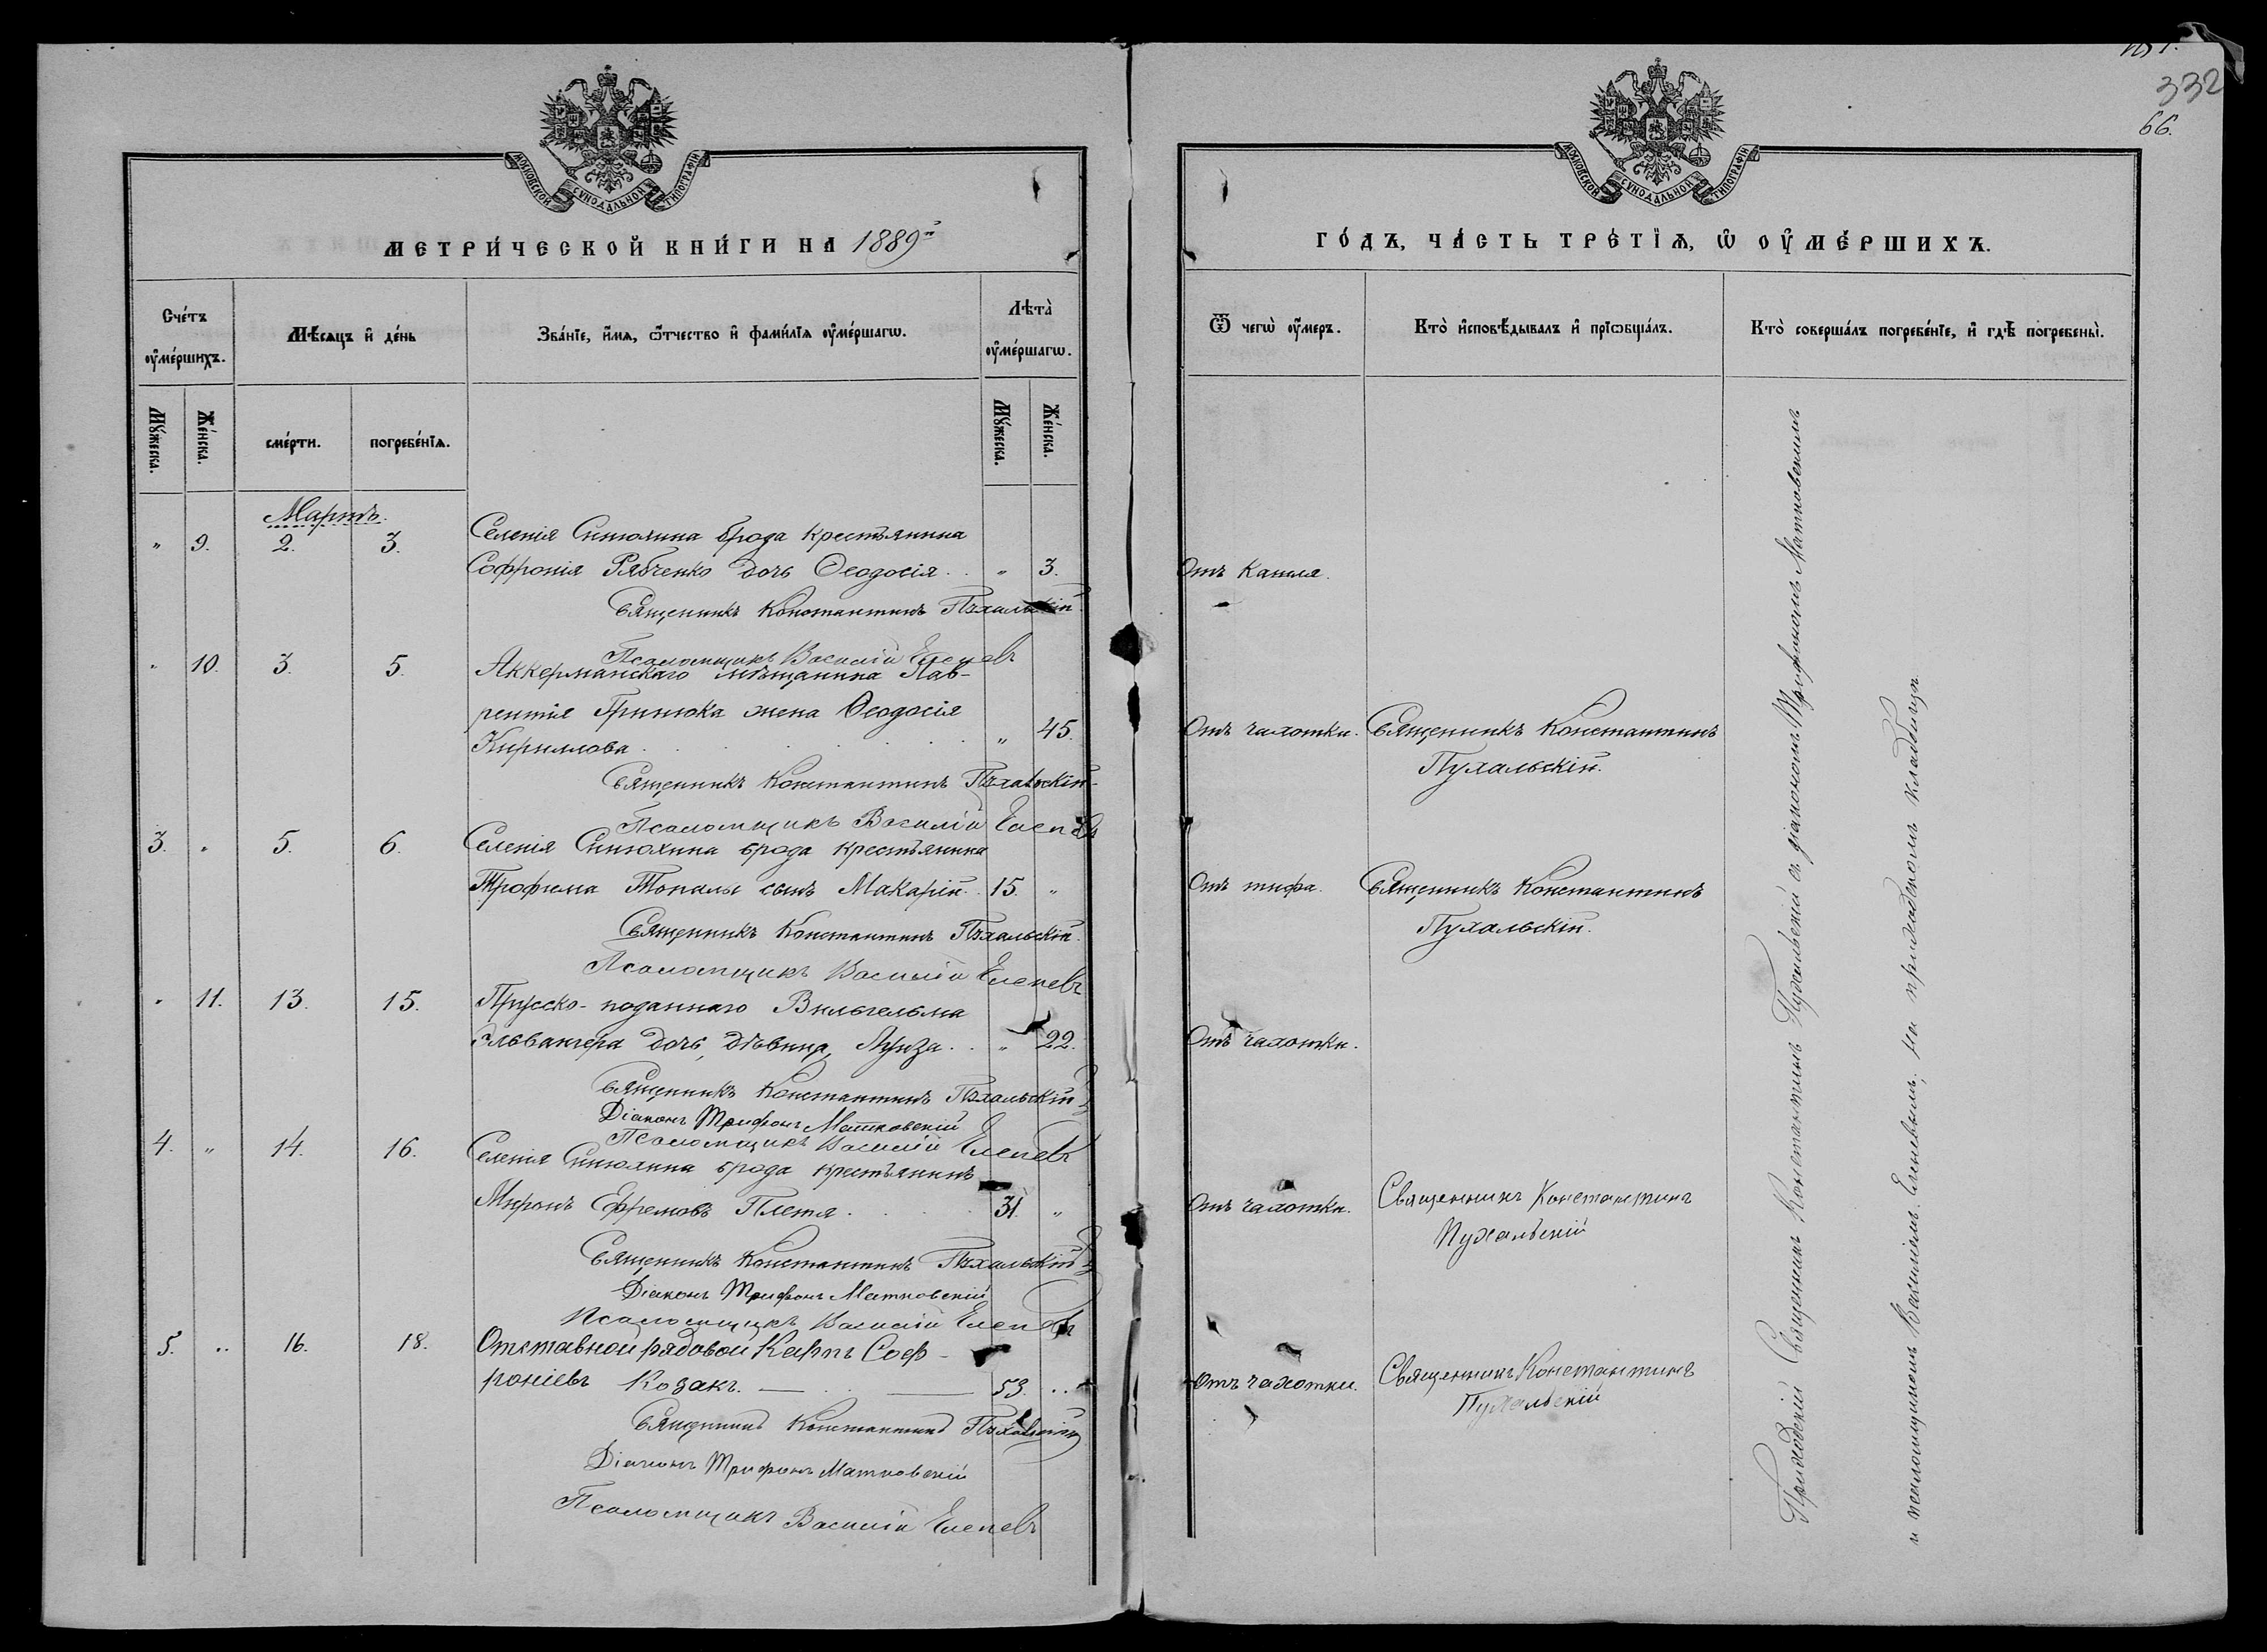 МОСКОВСКОЙ СУНОДАЛЬНОЙ ТИПОГРАФІИ
МЕТРИ́ЧЕСКОЙ КНИ́ГИ НА 1889й
Сче́тъ ᲂу҆ме́ршихъ.
Мѣ́сяцъ и҆ де́нь
Зва́нїе, и҆́мѧ, ѻ҆́тчество и҆ фами́лїѧ ᲂу҆ме́ршагѡ.
Лѣта̀ ᲂу҆ме́ршагѡ.
Мꙋ́жеска.
Же́нска.
сме́рти.
погребе́нїѧ.
Мꙋ́жеска.
Же́нска.
Мартъ.
" 9. 2. 3. Селенія Синюхина брода крестьянина
Софронія Рябченко дочь Ѳеодосія . . " 3.
Священникъ Константинъ Пухальскій
Псаломщикъ Василій Еленевъ
" 10. 3. 5. Аккерманскаго мѣщанина Лав-
рентія Гринюка жена Ѳеодосія
Кириллова . . . . . " 45.
Священникъ Константинъ Пухальскій
Псаломщикъ Василій Еленевъ
3. " 5. 6. Селенія Синюхина брода крестьянина
Трофима Топалы сынъ Макарій. 15. "
Священникъ Константинъ Пухальскій.
Псаломщикъ Василій Еленевъ
" 11. 13. 15. Прусско-поданнаго Вильгельма
Эльвангера дочь, дѣвица, Луиза. . " 22.
Священникъ Константинъ Пухальскій
Діаконъ Трифонъ Матковскій
Псаломщикъ Василій Еленевъ
4. " 14. 16. Селенія Синюхина брода крестьянинъ
Миронъ Ефремовъ Плетя . . . 31. "
Священникъ Константинъ Пухальскій
Діаконъ Трифонъ Матковскій
Псаломщикъ Василій Еленевъ
5. " 16. 18. Отставной рядовой Карпъ Соф-
роніевъ Козакъ. 53. "
Священникъ Константинъ Пухальскій
Діаконъ Трифонъ Матковскій
Псаломщикъ Василій Еленевъ
332
66.
МОСКОВСКОЙ СУНОДАЛЬНОЙ ТИПОГРАФІИ
ГО́ДЪ, ЧА́СТЬ ТРЕ́ТЇѦ, Ѡ҆ ОУ҆МЕ́РШИХЪ.
Ѿ чегѡ̀ ᲂу҆́меръ.
Кто̀ и҆сповѣ́дывалъ и҆ прїѡбща́лъ.
Кто̀ соверша́лъ погребе́нїе, и҆ гдѣ̀ погребены̀.
Отъ кашля.
Отъ чахотки. Священникъ Константинъ
Пухальскій.
Отъ тифа. Священникъ Константинъ
Пухальскій.
Отъ чахотки.
Отъ чахотки. Священникъ Константинъ
Пухальскій
Отъ чахотки. Священникъ Константинъ
Пухальскій
Приходскій Священникъ Константинъ Пухальскій съ діакономъ Трифономъ Матковскимъ
и псаломщикомъ Василіемъ Еленевымъ, на приходскомъ кладбищѣ.